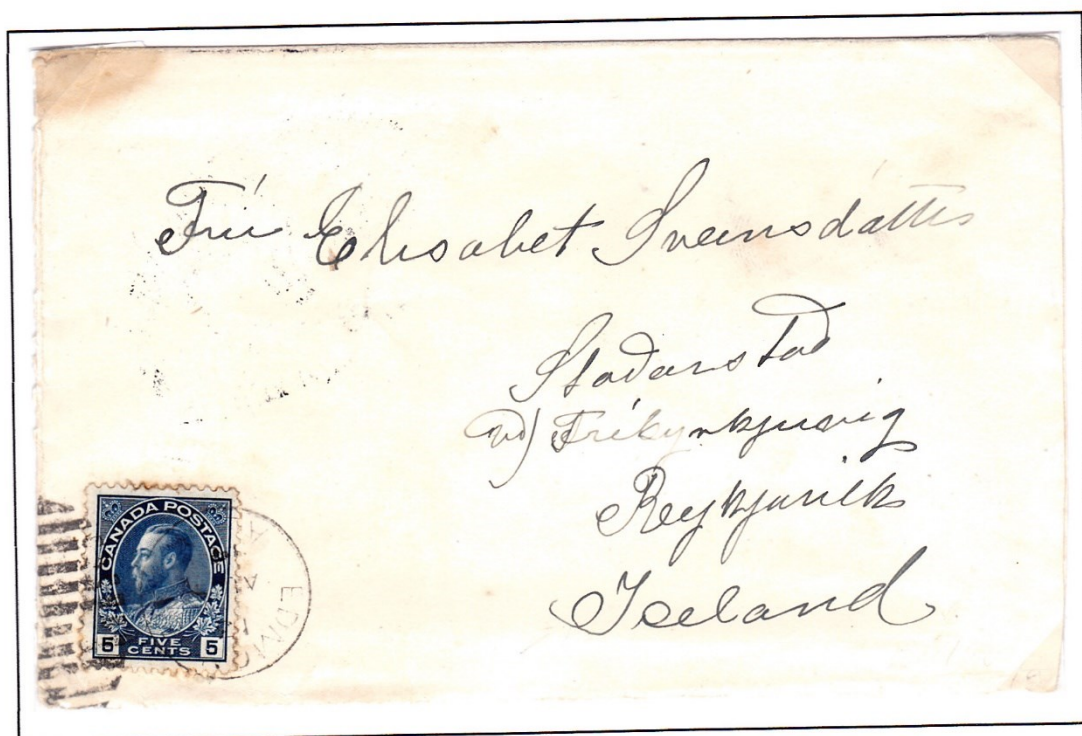 Frú Elisabet Sveinsdóttir
Stadarstad
við Fríkyrkjuvig
Reykjavik
Iceland
CANADA POSTAGE
5 FIVE CENTS 5